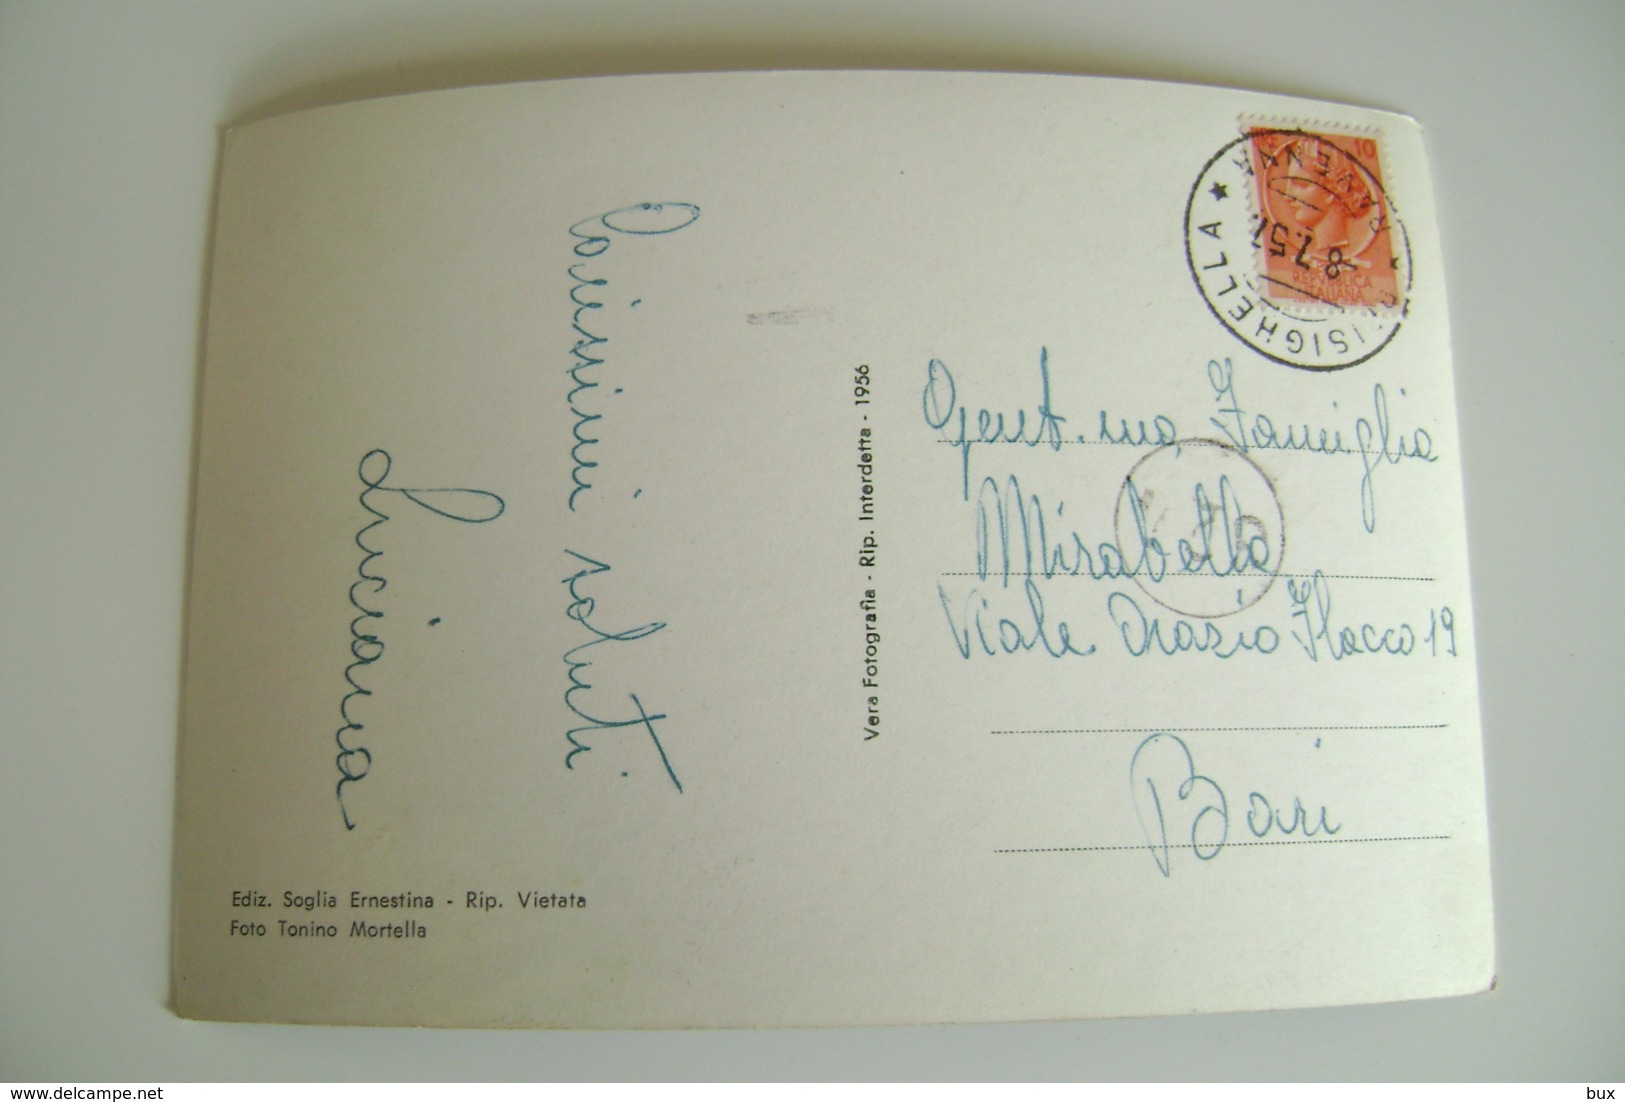 Carissimi saluti
Luciana
Ediz. Soglia Ernestina - Rip. Vietata
Foto Tonino Mortella
Vera Fotografia - Rip. Interdetta - 1956
10
REPVBBLICA
ITALIANA
BRISIGHELLA ★ RAVENNA ★
8.7.57
Gent.ma Famiglia
Mirabella
Viale Orazio Flacco 19
Bari
delcampe.net
bux